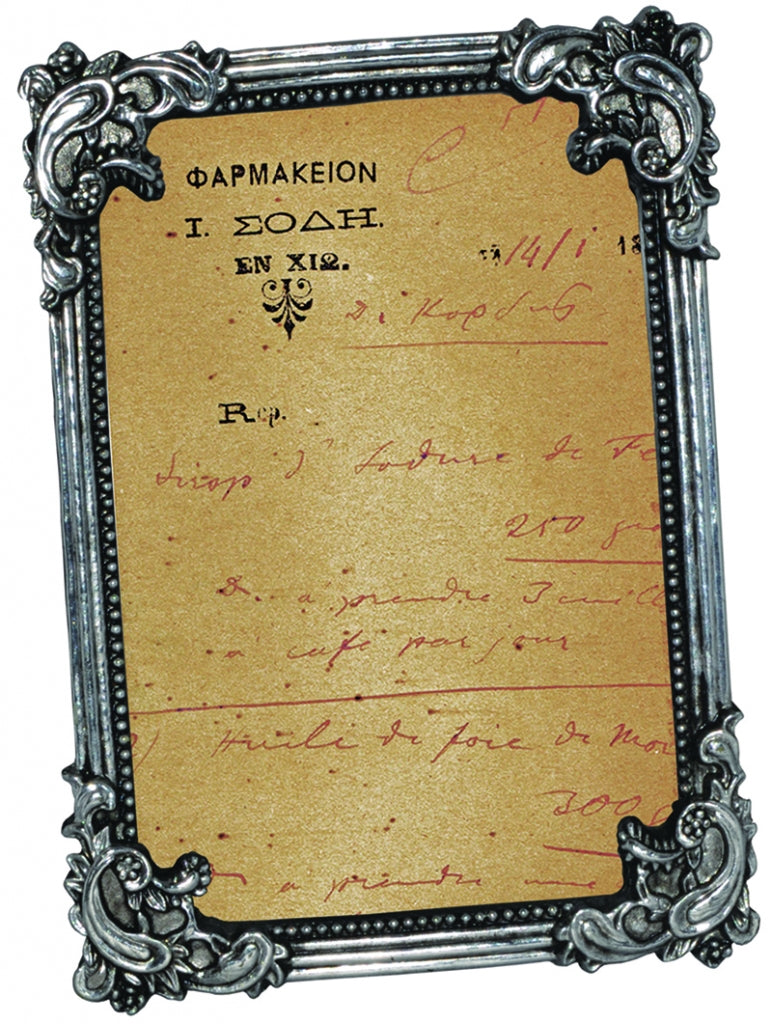 ΦΑΡΜΑΚΕΙΟΝ
Ι. ΣΟΔΗ.
ΕΝ ΧΙΩ.
τῇ 14/1 18
Rep.
Sirop d' Iodure de Fe
250
D. a prendre 3 cuill
a café par jour
2) Huile de foie de Mo
300 g
D. a prendre une